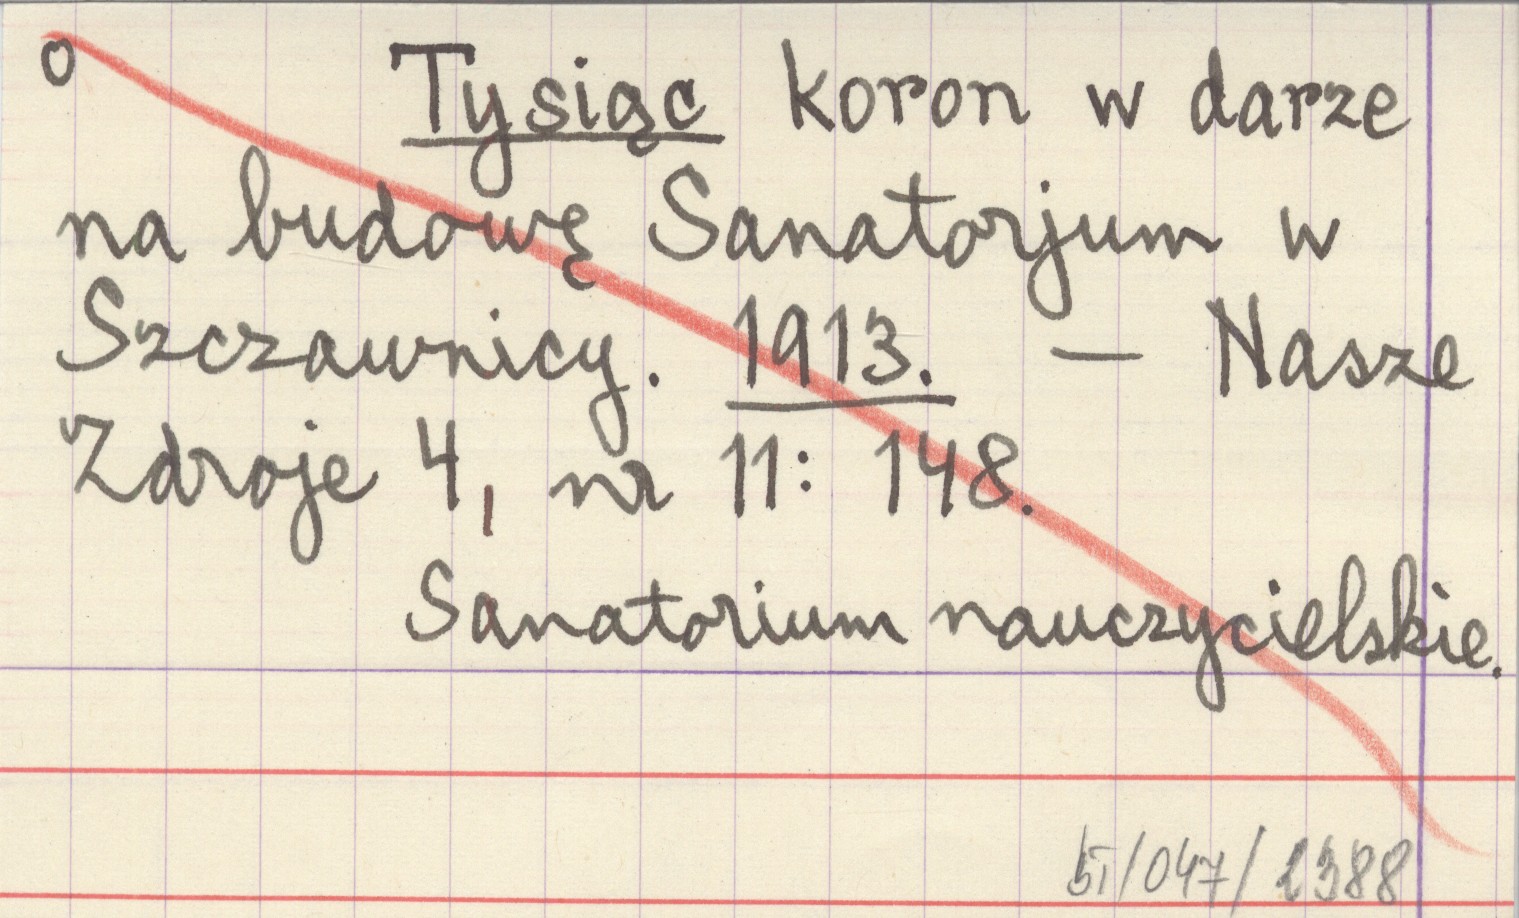 o Tysiąc koron w darze
na budowę Sanatorjum w
Szczawnicy. 1913. — Nasze
Zdroje 4, nr 11: 148.
Sanatorium nauczycielskie.
/047/ 2388